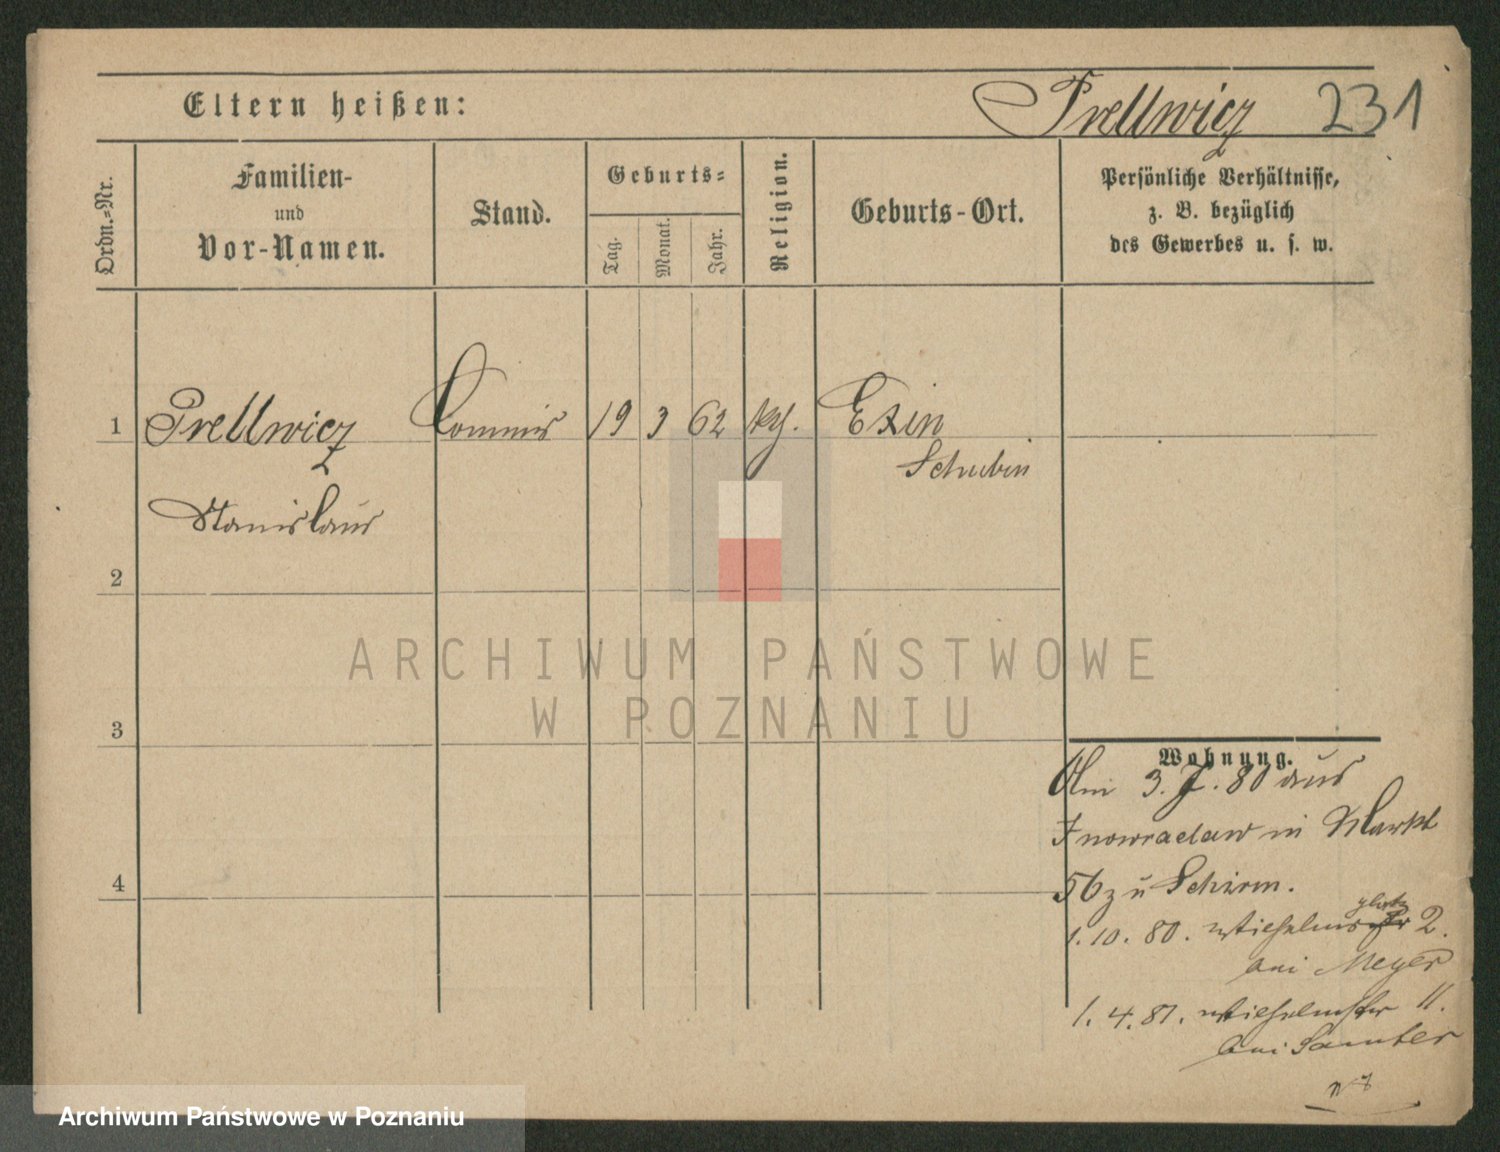 Eltern heißen:
Prellwicz 231
Ordn.=Nr.
Familien-
und
Vor-Namen.
Stand.
Geburts=
Tag.
Monat.
Jahr.
Religion.
Geburts-Ort.
Persönliche Verhältnisse,
z. B. bezüglich
des Gewerbes u. s. w.
1 Prellwicz Commis 19 3 62 kth. Exin
Schubin
Stanislaus
2
3
4
Wohnung.
Am 3. 7. 80 aus
Inowraclaw in Markt
56 zu Schirm.
1. 10. 80. Wilhelmsplatz 2.
bei Meyer
1. 4. 81. Wilhelmstr 11.
bei Samter
ARCHIWUM PAŃSTWOWE
W POZNANIU
Archiwum Państwowe w Poznaniu